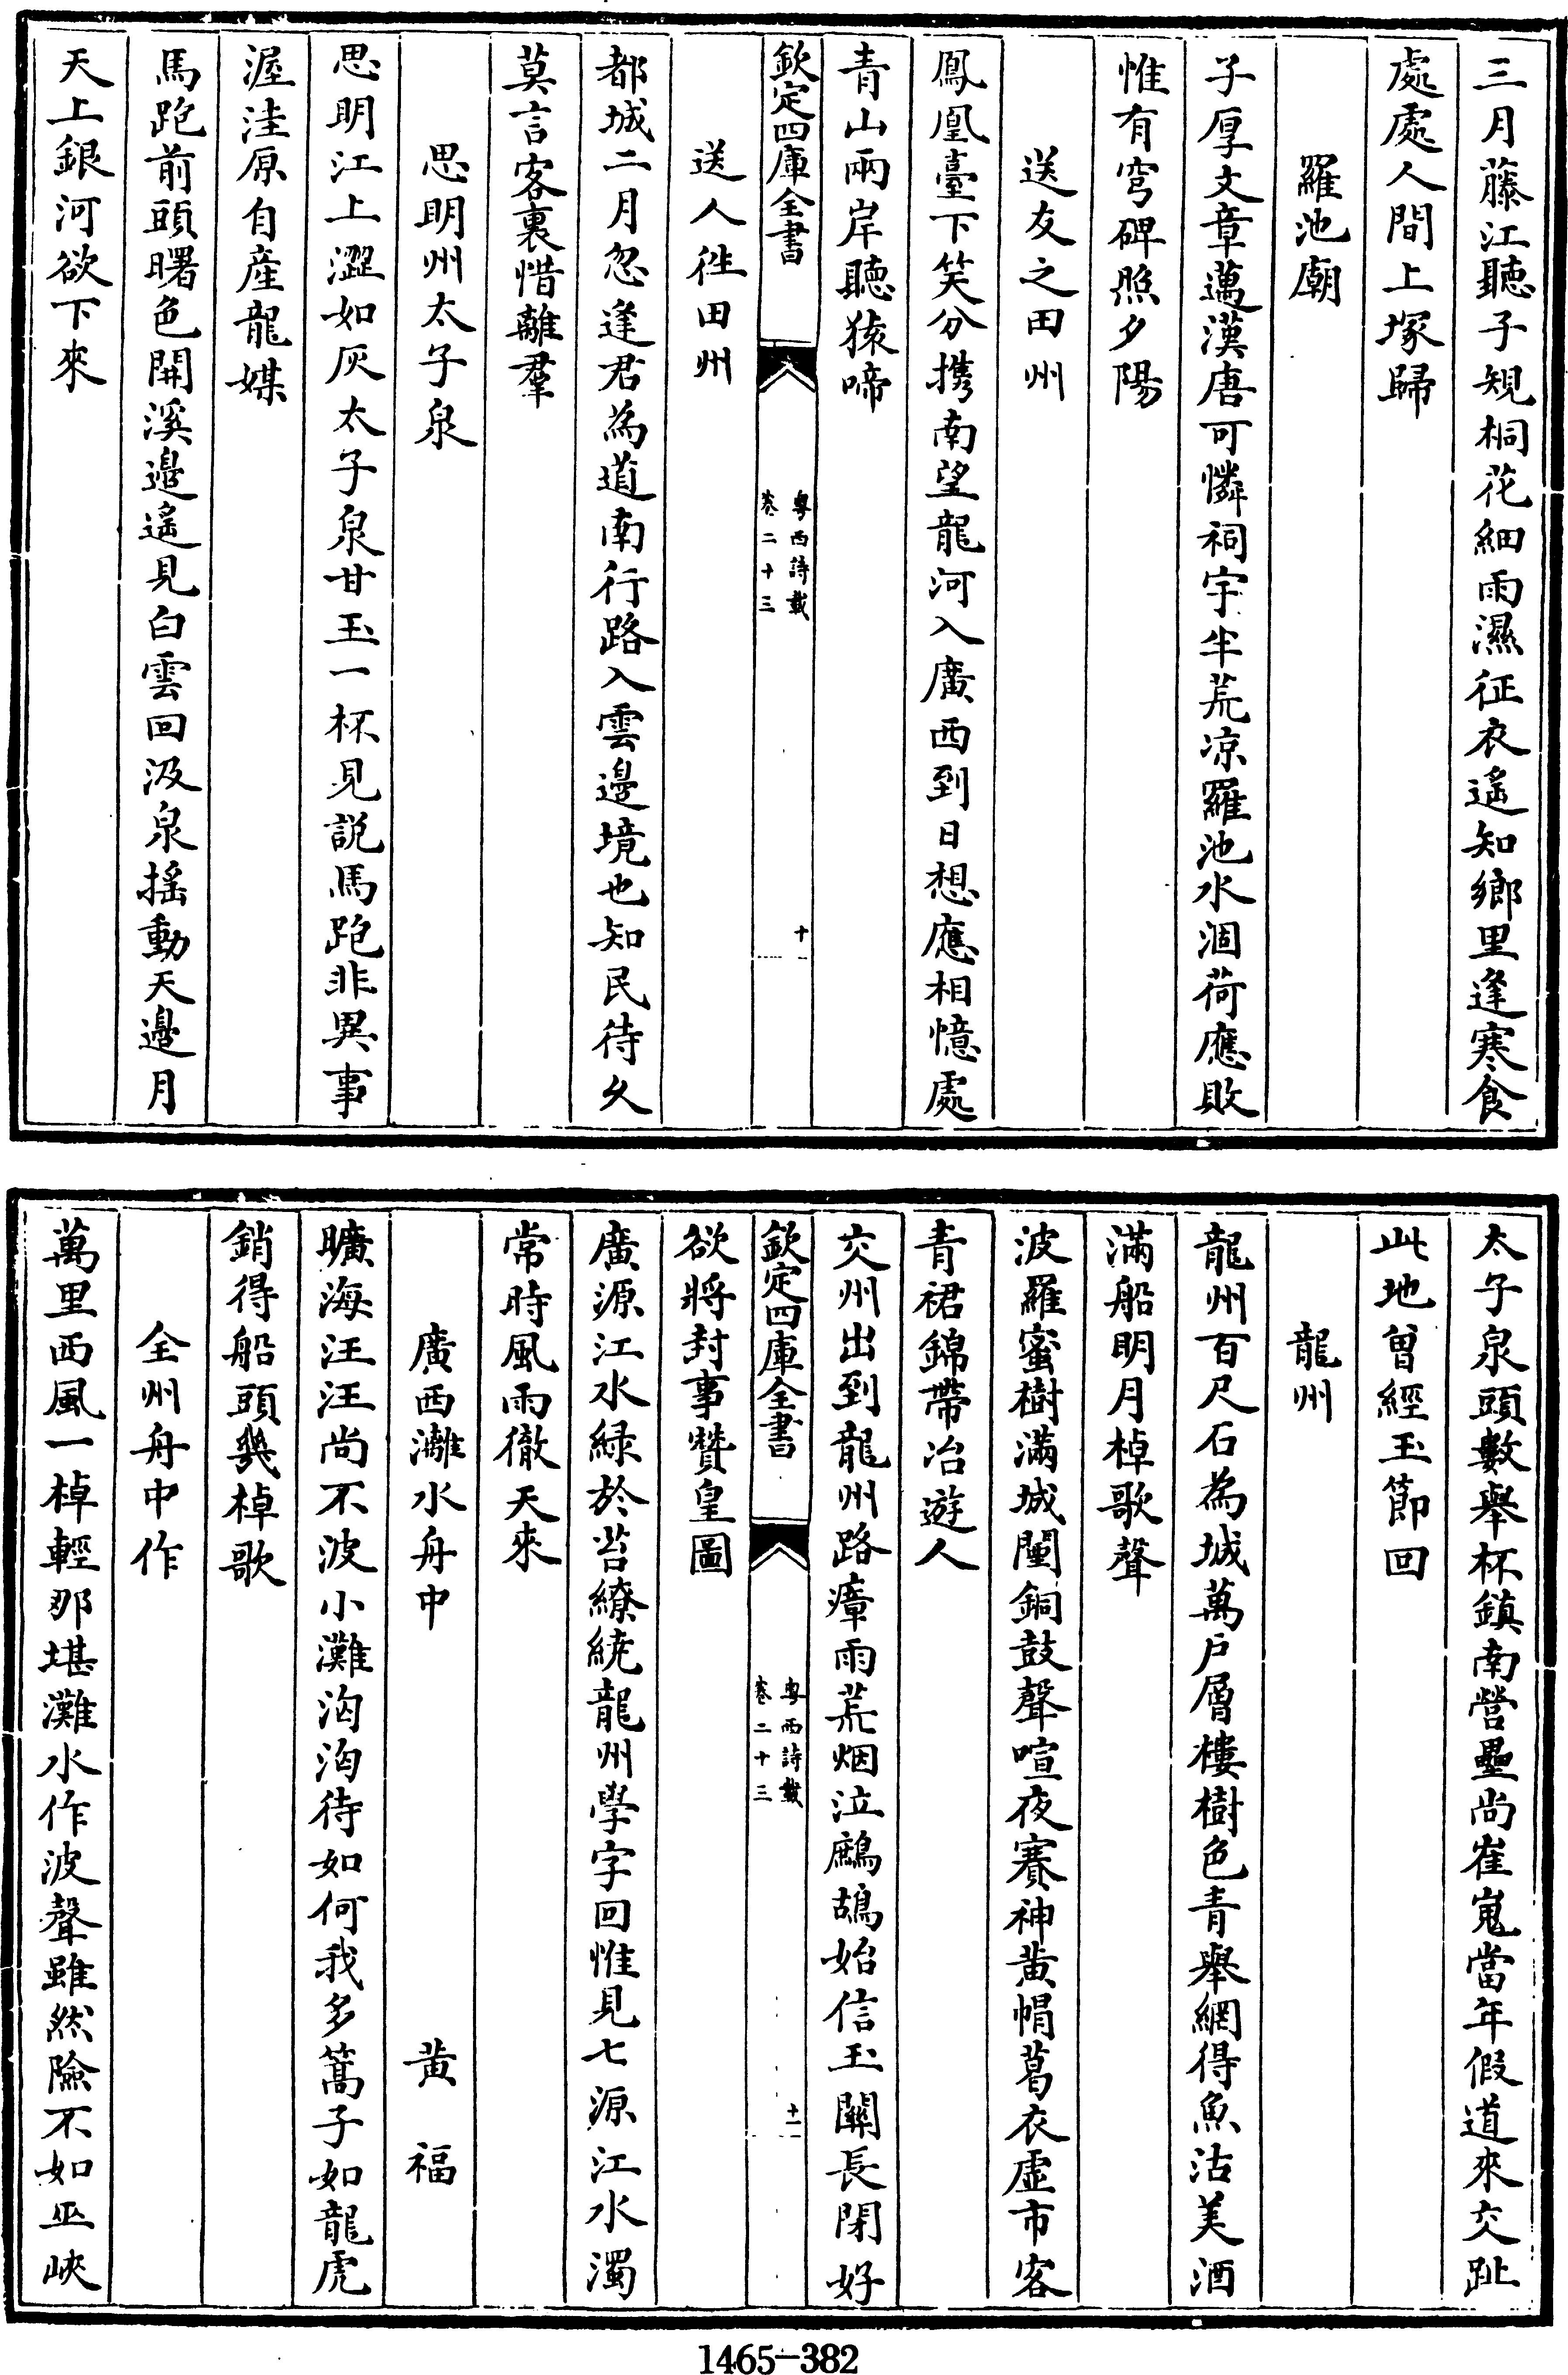 三月藤江聽子規桐花細雨濕征衣遙知鄉里逢寒食
處處人間上塚歸
羅池廟
子厚文章邁漢唐可憐祠宇半荒凉羅池水涸荷應敗
惟有穹碑照夕陽
送友之田州
鳳凰臺下笑分擕南望龍河入廣西到日想應相憶處
青山兩岸聽猿啼
欽定四庫全書
粵西詩載
卷二十三
十
送人徃田州
都城二月忽逢君為道南行路入雲邊境也知民待乆
莫言客裏惜離羣
思明州太子泉
思明江上澀如灰太子泉甘玉一杯見説馬跑非異事
渥洼原自產龍媒
馬跑前頭曙色開溪邊遙見白雲回汲泉揺動天邊月
天上銀河欲下來
太子泉頭數舉杯鎮南營壘尚崔嵬當年假道來交趾
此地曾經玉節回
龍州
龍州百尺石為城萬户層樓樹色青舉網得魚沽美酒
滿船明月棹歌聲
波羅蜜樹滿城闉銅鼓聲喧夜賽神黄帽葛衣虛市客
青裙錦帶冶遊人
交州出到龍州路瘴雨荒烟泣鷓鴣始信玉關長閉好
欽定四庫全書
粵西詩載
卷二十三
十一
欲將封事贊皇圖
廣源江水緑於苔繚繞龍州學字回惟見七源江水濁
常時風雨徹天來
廣西灕水舟中
黄福
曠海汪汪尚不波小灘洶洶待如何我多篙子如龍虎
銷得船頭㡬棹歌
全州舟中作
萬里西風一棹輕那堪灘水作波聲雖然險不如巫峽
1465-382